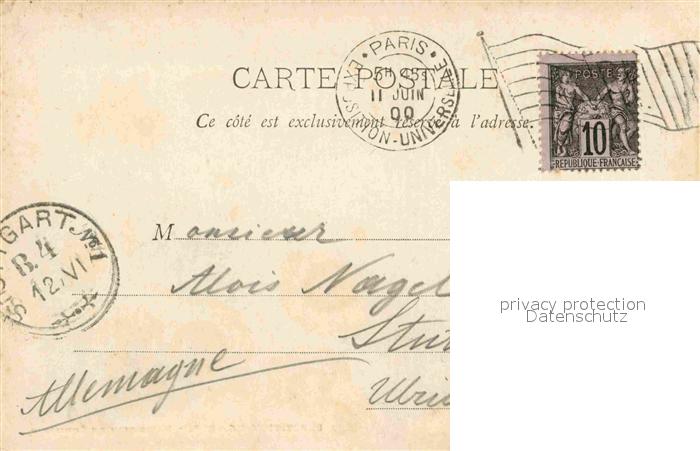 PARIS
EXPOSITION-UNIVERSELLE
5H 45S
11 JUIN
00
POSTES
10
REPUBLIQUE FRANÇAISE
CARTE POSTALE
Ce côté est exclusivement réservé à l'adresse.
Monsieur
STUTTGART No1
B.4
12/VI
Alois Nagel
privacy protection
Datenschutz
Allemagne